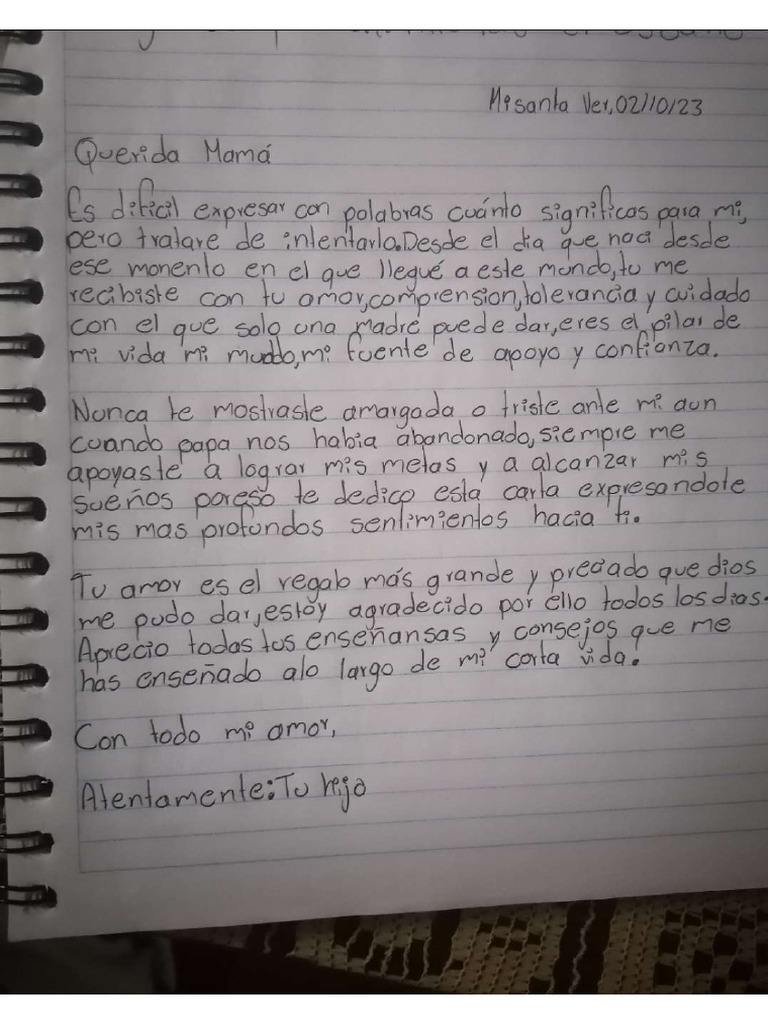 Misanta Ver,02/10/23
Querida Mamá
Es dificil expresar con palabras cuánto significas para mi,
pero tratare de intentarlo.Desde el dia que naci desde
ese monento en el que llegué a este mundo,tu me
recibiste con tu amor,comprension,tolerancia y cuidado
con el que solo una madre puede dar,eres el pilar de
mi vida mi mundo,mi fuente de apoyo y confianza.
Nunca te mostraste amargada o triste ante mi aun
cuando papa nos habia abandonado,siempre me
apoyaste a lograr mis metas y a alcanzar mis
sueños poreso te dedico esta carta expresandole
mis mas profundos sentimientos hacia ti.
Tu amor es el regalo más grande y preciado que dios
me pudo dar,estoy agradecido por ello todos los dias.
Aprecio todas tus enseñansas y consejos que me
has enseñado alo largo de mi corta vida.
Con todo mi amor,
Atentamente:Tu hijo